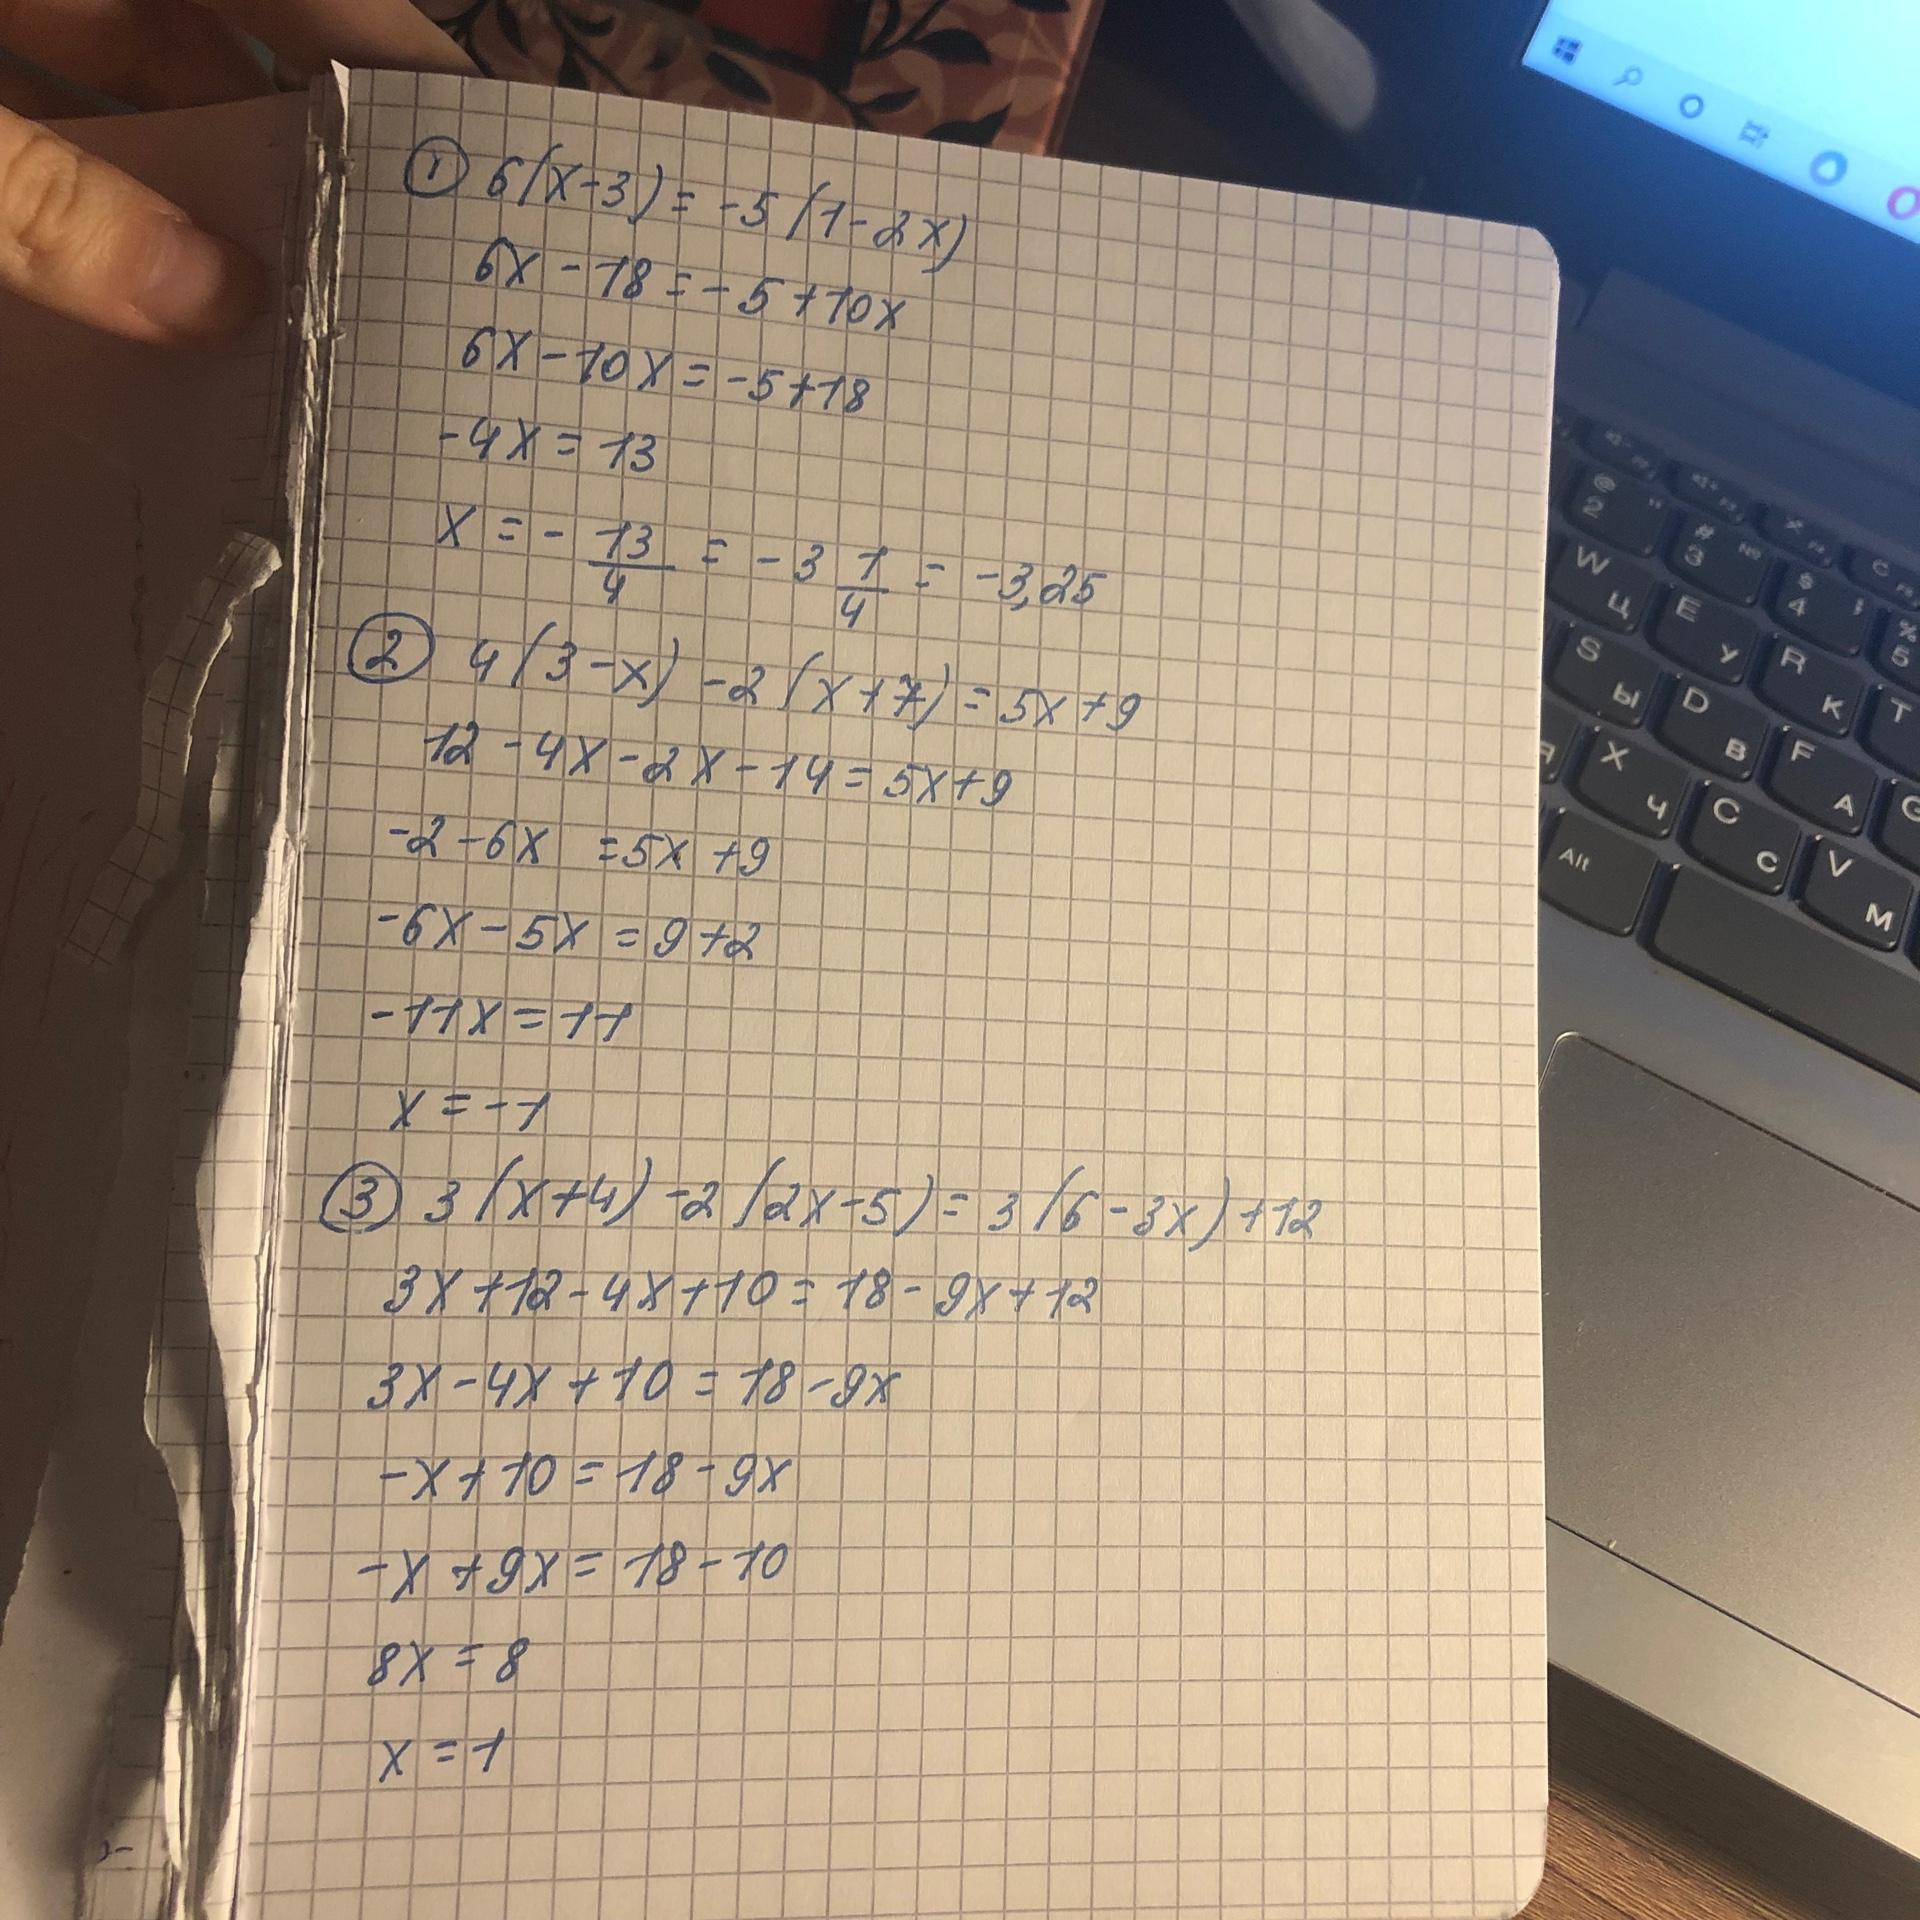 ① 6(x-3) = -5(1-2x)
6x - 18 = -5 + 10x
6x - 10x = -5 + 18
-4x = 13
x = - 13/4 = -3 1/4 = -3,25
② 4(3-x) -2(x+7) = 5x+9
12 - 4x - 2x - 14 = 5x+9
-2 - 6x = 5x + 9
-6x - 5x = 9 + 2
-11x = 11
x = -1
③ 3(x+4) -2(2x-5) = 3(6-3x)+12
3x + 12 - 4x + 10 = 18 - 9x + 12
3x - 4x + 10 = 18 - 9x
-x + 10 = 18 - 9x
-x + 9x = 18 - 10
8x = 8
x = 1
@ 2 "
# 3 №
$ 4 ;
% 5
W Ц
E У
R К
T
S Ы
D В
F А
G
Я
X Ч
C С
V М
Alt